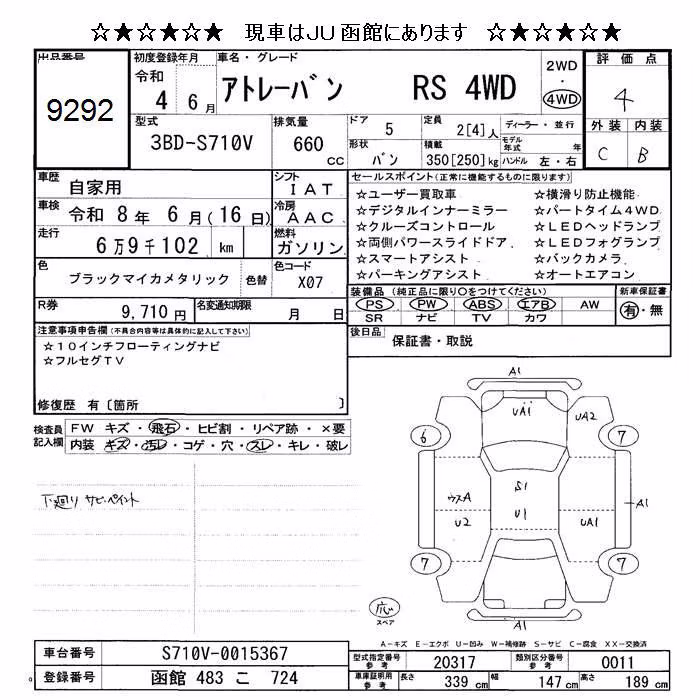 ☆★☆★☆★ 現車はJU函館にあります ☆★☆★☆★
出品番号
9292
初度登録年月
令和
4 6月
車名・グレード
アトレーバン RS 4WD
2WD
・
4WD
評価点
4
外装 内装
C B
型式
3BD-S710V
排気量
660
cc
ドア
5
定員
2[4]人
ディーラー・並行
形状
バン
積載
350[250]kg
モデル年式 年
ハンドル 左・右
車歴
自家用
シフト
IAT
車検
令和 8年 6月(16日)
冷房
AAC
走行
6万9千102 km
燃料
ガソリン
色
ブラックマイカメタリック
色替
色コード
X07
R券
9,710円
名変通知期限
月 日
セールスポイント(正常に機能するものに限ります)
☆ユーザー買取車
☆横滑り防止機能
☆デジタルインナーミラー
☆パートタイム4WD
☆クルーズコントロール
☆LEDヘッドランプ
☆両側パワースライドドア
☆LEDフォグランプ
☆スマートアシスト
☆バックカメラ
☆パーキングアシスト
☆オートエアコン
装備品(純正品に限り○をつけてください)
新車保証書
PS PW ABS エアB AW
有・無
SR ナビ TV カワ
後日品
保証書・取説
注意事項申告欄(不具合内容は具体的に記入して下さい)
☆10インチフローティングナビ
☆フルセグTV
修復歴 有〔箇所 〕
検査員記入欄
FW キズ・飛石・ヒビ割・リペア跡・×要
内装 キズ・汚レ・コゲ・穴・スレ・キレ・破レ
下廻り サビ・ペイント
A1
UA1
UA2
6
7
S1
ウスA
U1
U2
UA1
A1
7
7
応
スペア
A1
A-キズ E-エクボ U-凹み W-補修跡 S-サビ C-腐食 XX-交換済
車台番号
S710V-0015367
登録番号
函館 483 こ 724
型式指定番号
参考
20317
類別区分番号
参考
0011
車庫証明用
参考
長さ
339 cm
幅
147 cm
高さ
189 cm